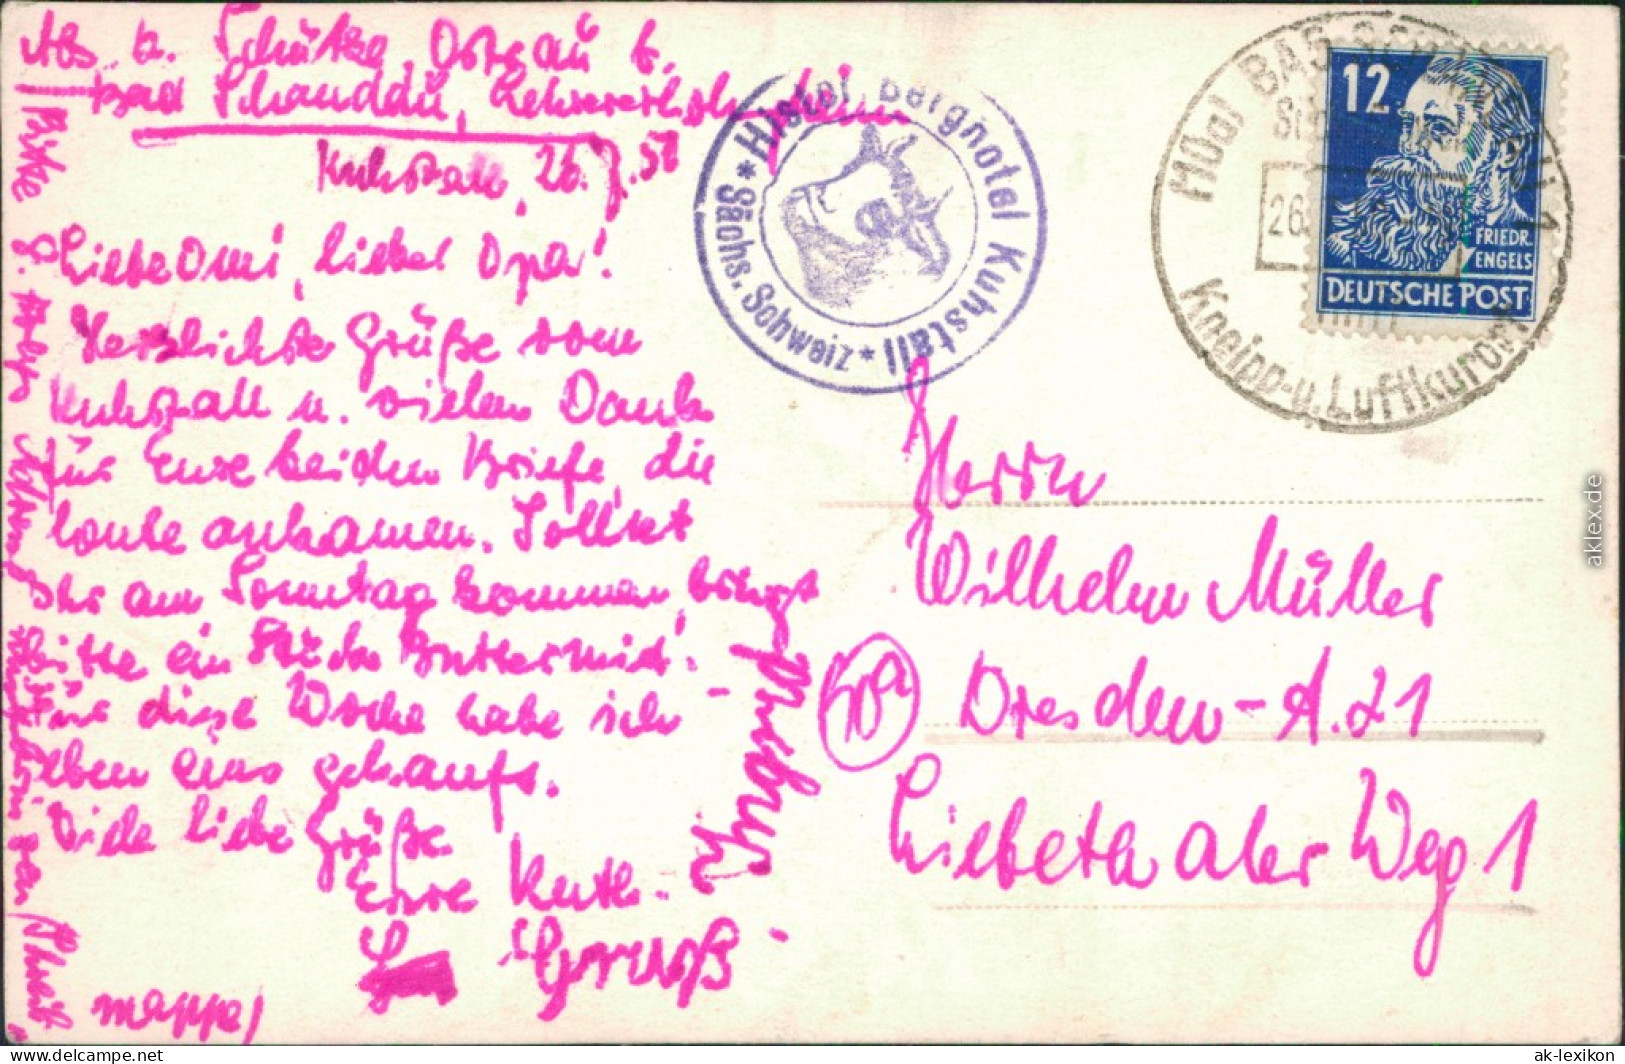 Abs. b. Schütze, Ostrau b.
Bad Schandau, Lehrererholungsheim
Kuhstall, 26.7.51
Liebe Omi, lieber Opa!
Herzlichste Grüße vom
Kuhstall u. vielen Dank
für Eure beiden Briefe, die
heute ankamen. Solltet
Ihr am Sonntag kommen, bringt
bitte ein Stück Butter mit.
Für diese Woche habe ich
eben eins gekauft.
Viele liebe Grüße
Eure Ruth.
Gruß
Bitte
mappe)
Histor. Berghotel Kuhstall
* Sächs. Schweiz *
Müal BAD SCHANDAU 1
26.
Kneipp-u. Luftkurort
12
FRIEDR.
ENGELS
DEUTSCHE POST
Herrn
Wilhelm Müller
Dresden-A. 21
Liebethaler Weg 1
aklex.de
delcampe.net
ak-lexikon